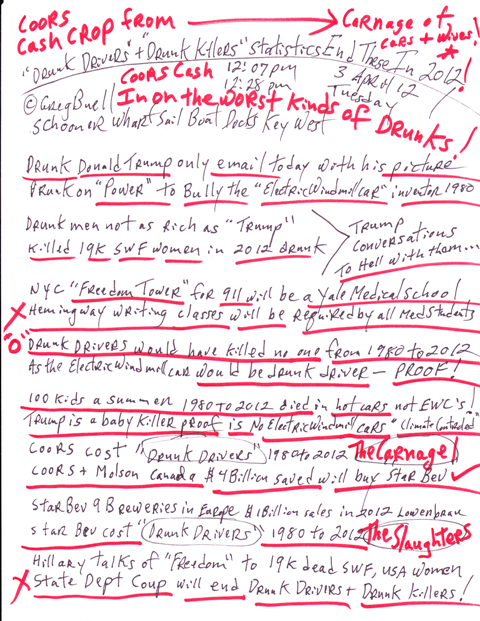 COORS CASH CROP FROM → CARNAGE OF CARS + WIVES!
"DRUNK DRIVERS" + "DRUNK KILLERS" STATISTICS END THESE IN 2012!
COORS CASH 12:07 pm 3 APRIL 12
12:28 pm TUESDAY
IN ON THE WORST KINDS OF DRUNKS!
© GREG BUELL
SCHOONER WHARF SAIL BOAT DOCKS KEY WEST
DRUNK DONALD TRUMP only email today with his picture
DRUNK ON "POWER" to BULLY the "ELECTRIC WINDMILL CAR" inventor 1980
DRUNK men not as RICH as "TRUMP"
KILLED 19K SWF WOMEN in 2012 DRUNK
TRUMP
CONVERSATIONS
TO HELL WITH THEM...
NYC "FREEDOM TOWER" for 911 will be a YALE MEDICAL SCHOOL
X HEMINGWAY WRITING classes will be REQUIRED by all MED STUDENTS
"0" DRUNK DRIVERS would have killed no one from 1980 to 2012
AS the ELECTRIC WINDMILL CAR would be DRUNK DRIVER — PROOF!
100 KIDS a summer 1980 TO 2012 DIED in hot CARS not EWC's!
TRUMP is a baby KILLER PROOF is No ELECTRIC WINDMILL CARS "Climate Controlled"
COORS COST "DRUNK DRIVERS" 1980 to 2012 THE CARNAGE!
COORS + MOLSON CANADA $4 Billion saved will buy STAR BEV ✓
STAR BEV 9 BREWERIES in EUROPE $1 Billion sales in 2012 Lowenbrau
STAR BEV COST "DRUNK DRIVERS" 1980 to 2012 THE SLAUGHTERS
HILLARY TALKS OF "FREEDOM" to 19K DEAD SWF, USA WOMEN
X STATE DEPT COUP will end DRUNK DRIVIRS + DRUNK KILLERS!